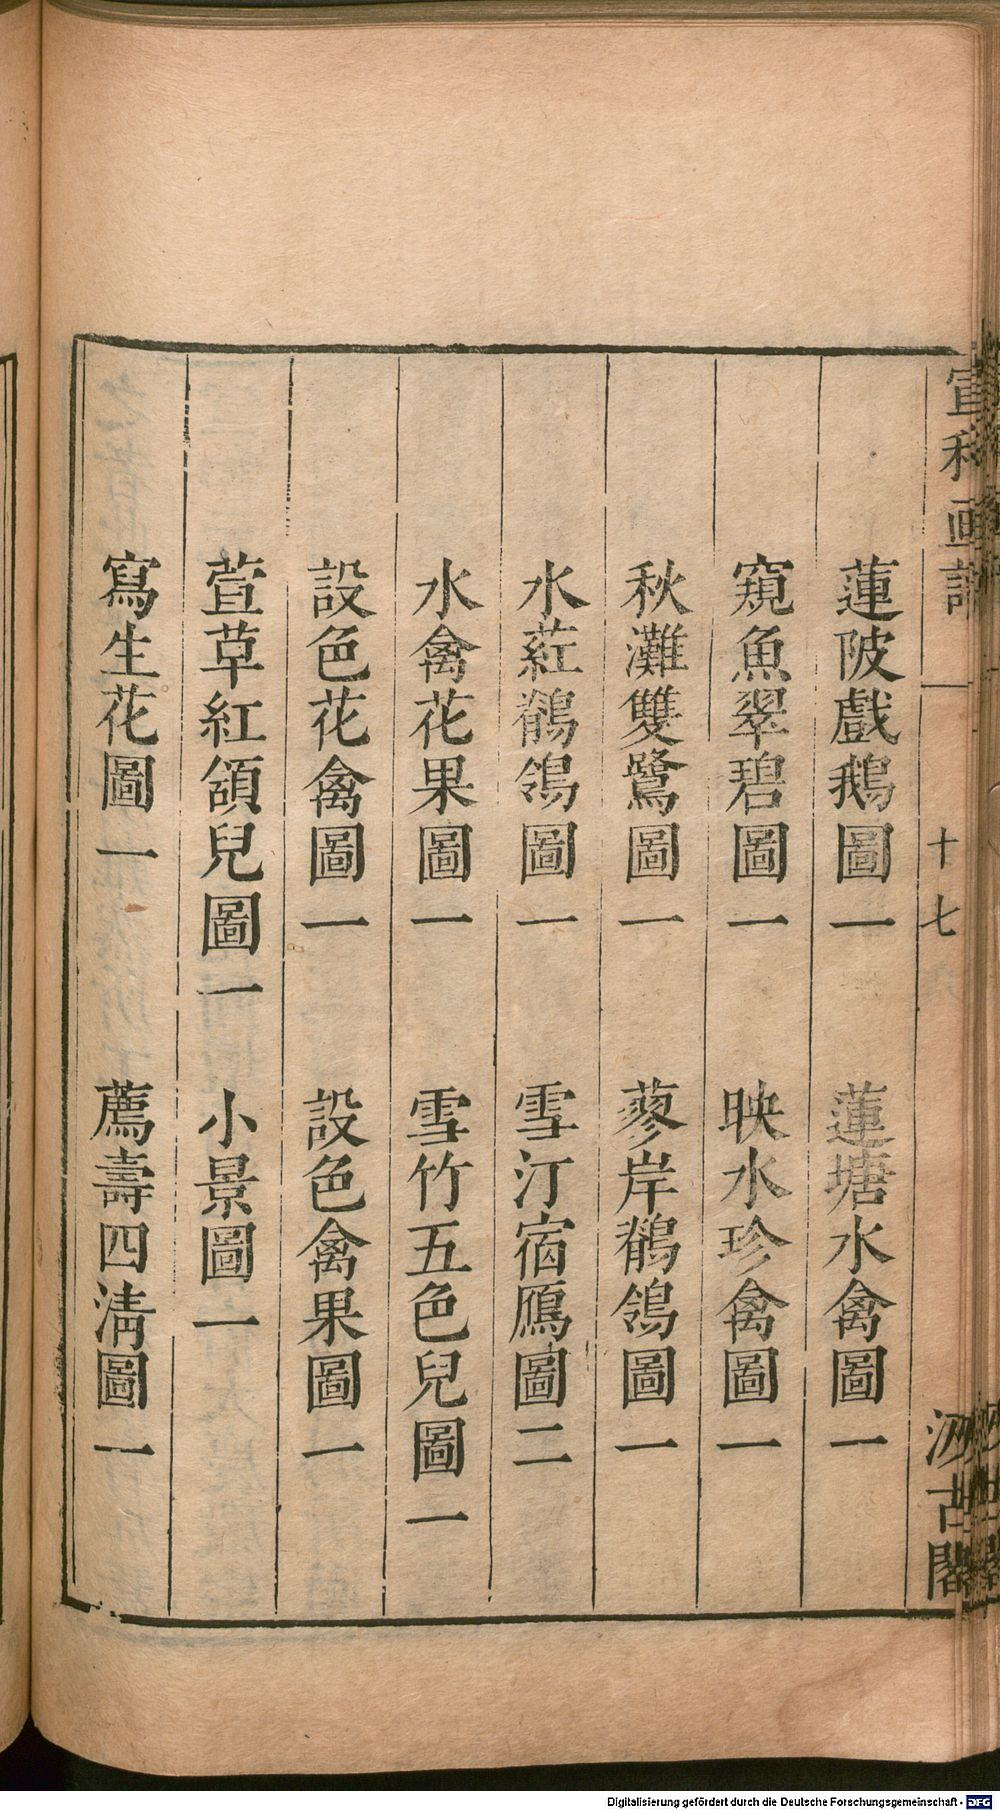 宣和画譜 十七 汲古閣
蓮陂戲鵝圖一 蓮塘水禽圖一
窺魚翠碧圖一 映水珍禽圖一
秋灘雙鷺圖一 蓼岸鶺鴒圖一
水葒鶺鴒圖一 雪汀宿鴈圖二
水禽花果圖一 雪竹五色兒圖一
設色花禽圖一 設色禽果圖一
萱草紅頷兒圖一 小景圖一
寫生花圖一 薦壽四清圖一
Digitalisierung gefördert durch die Deutsche Forschungsgemeinschaft - DFG